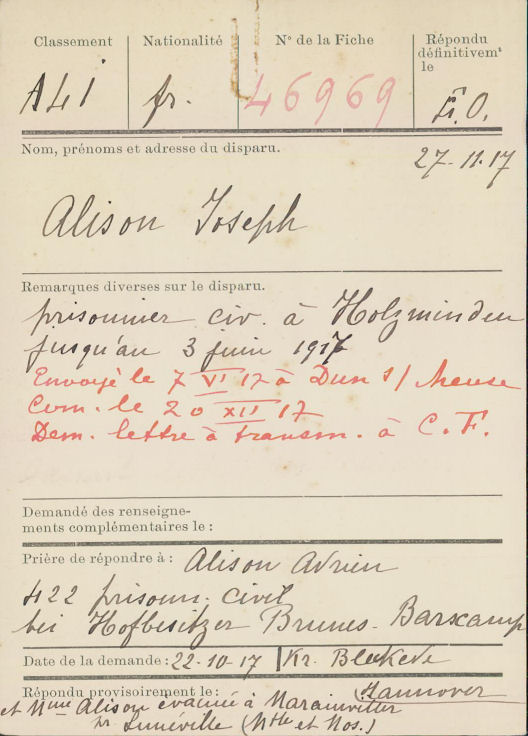 Classement
Nationalité
N° de la Fiche
Répondu
définitivemt
le
A41
fr.
46969
F. O.
Nom, prénoms et adresse du disparu.
27-11-17
Alison Joseph
Remarques diverses sur le disparu.
prisonnier civ. à Holzminden
jusqu'au 3 juin 1917
Envoyé le 7 VI 17 à Dun s/ Meuse
Com. le 20 XII 17
Dem. lettre à transm. à C. F.
Demandé des renseigne-
ments complémentaires le :
Prière de répondre à : Alison Adrien
422 prisonn. civil
bei Hofbesitzer Brunes. Barscamp
Date de la demande : 22-10-17 Kr. Bleckede
Répondu provisoirement le : (Hannover
et Mme Alison évacuée à Marainviller
pr. Lunéville (Mthe et Mos.)